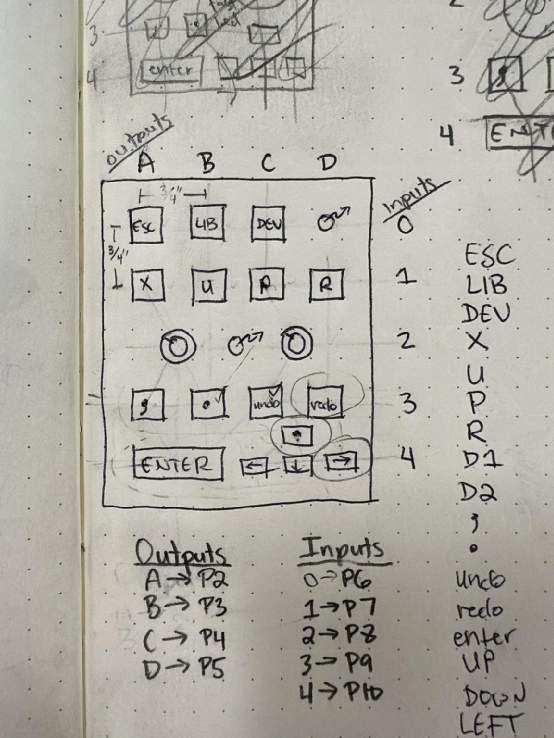 3
4 enter
2
3
4 ENTE
Outputs
A B C D
Inputs
3/4"
ESC LIB DEV 0
3/4"
X U P R 1
2
; . undo redo 3
ENTER ← ↓ → 4
ESC
LIB
DEV
X
U
P
R
D1
D2
;
.
undo
redo
enter
UP
DOWN
LEFT
Outputs
A → P2
B → P3
C → P4
D → P5
Inputs
0 → P6
1 → P7
2 → P8
3 → P9
4 → P10